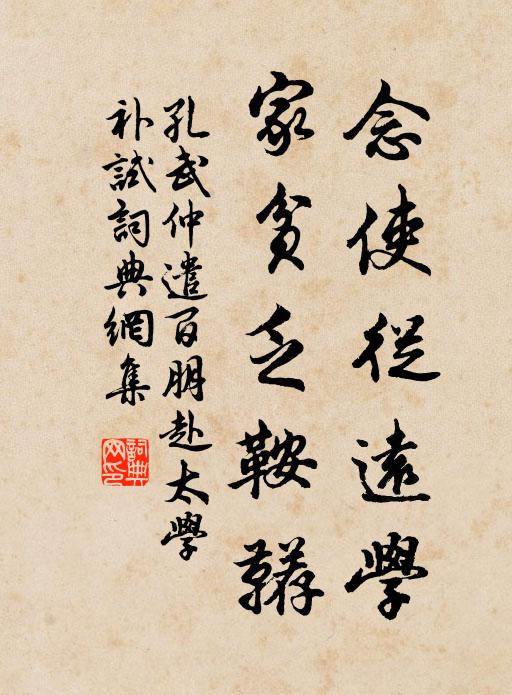 念使從遠學
家貧乏鞍韉
孔武仲遣百朋赴太學
补試詞典網集
詞典
网印